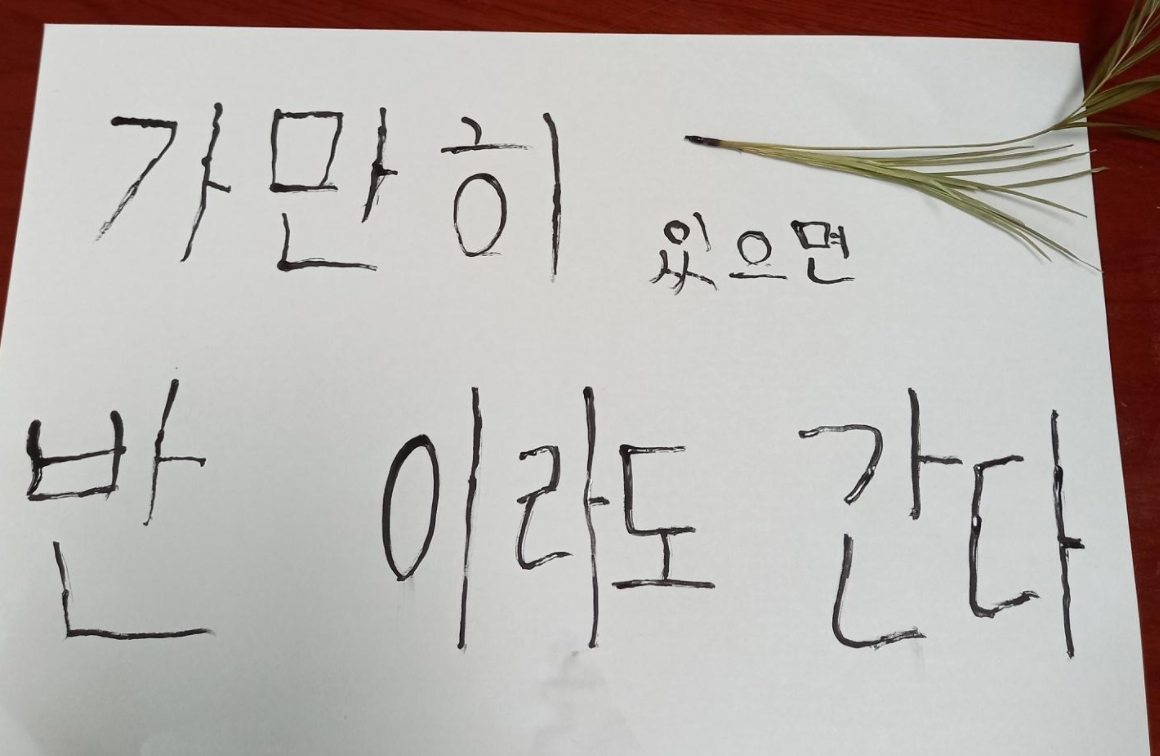 가만히 있으면
반 이라도 간다